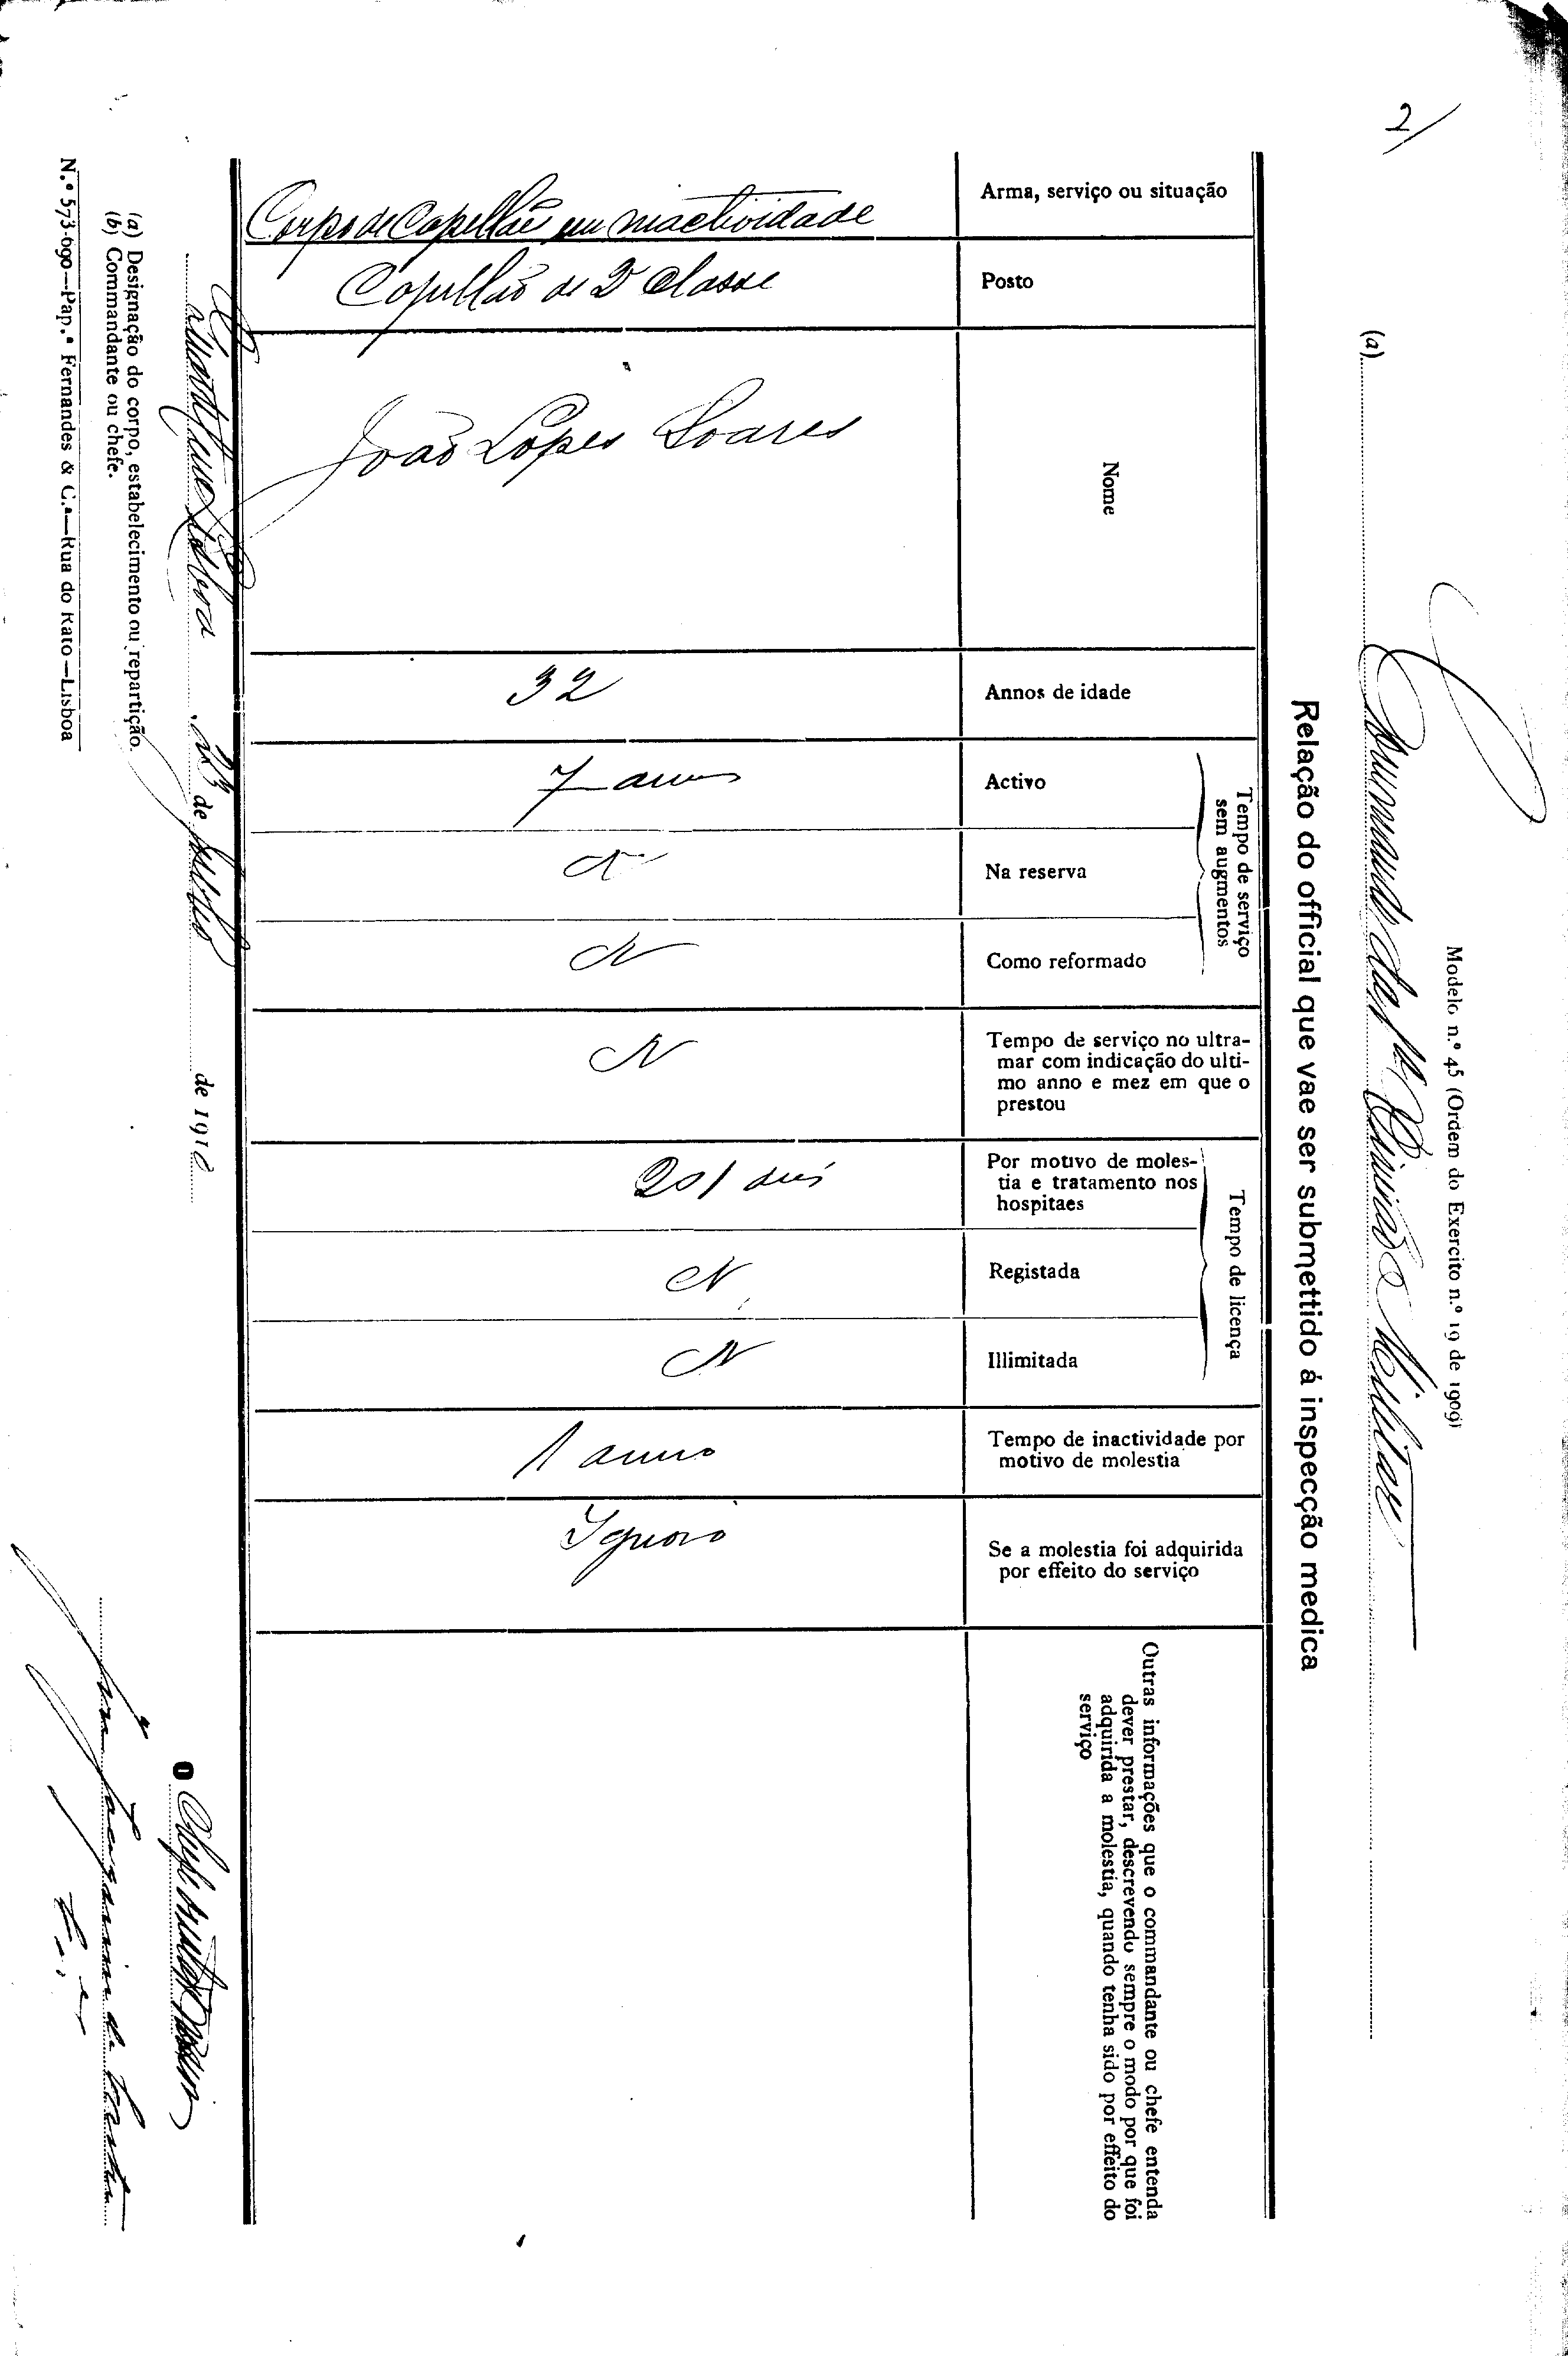 2
Modelo n.º 45 (Ordem do Exercito n.º 19 de 1909)
(a) Commando da 1ª Divisão Militar
Relação do official que vae ser submettido á inspecção medica
Arma, serviço ou situação
Corpo de Capellães em inactividade
Posto
Capellão de 2ª classe
Nome
João Lopes Soares
Annos de idade
32
Tempo de serviço
sem augmentos
Activo
7 annos
Na reserva
N
Como reformado
N
Tempo de serviço no ultra-
mar com indicação do ulti-
mo anno e mez em que o
prestou
N
Tempo de licença
Por motivo de moles-
tia e tratamento nos
hospitaes
201 dias
Registada
N
Illimitada
N
Tempo de inactividade por
motivo de molestia
1 anno
Se a molestia foi adquirida
por effeito do serviço
Ignoro
Outras informações que o commandante ou chefe entenda
dever prestar, descrevendo sempre o modo por que foi
adquirida a molestia, quando tenha sido por effeito do
serviço
Lisboa 23 de Julho de 1910
O
(a) Designação do corpo, estabelecimento ou repartição.
(b) Commandante ou chefe.
N.º 573-090—Pap.ª Fernandes & C.ª—Rua do Rato—Lisboa